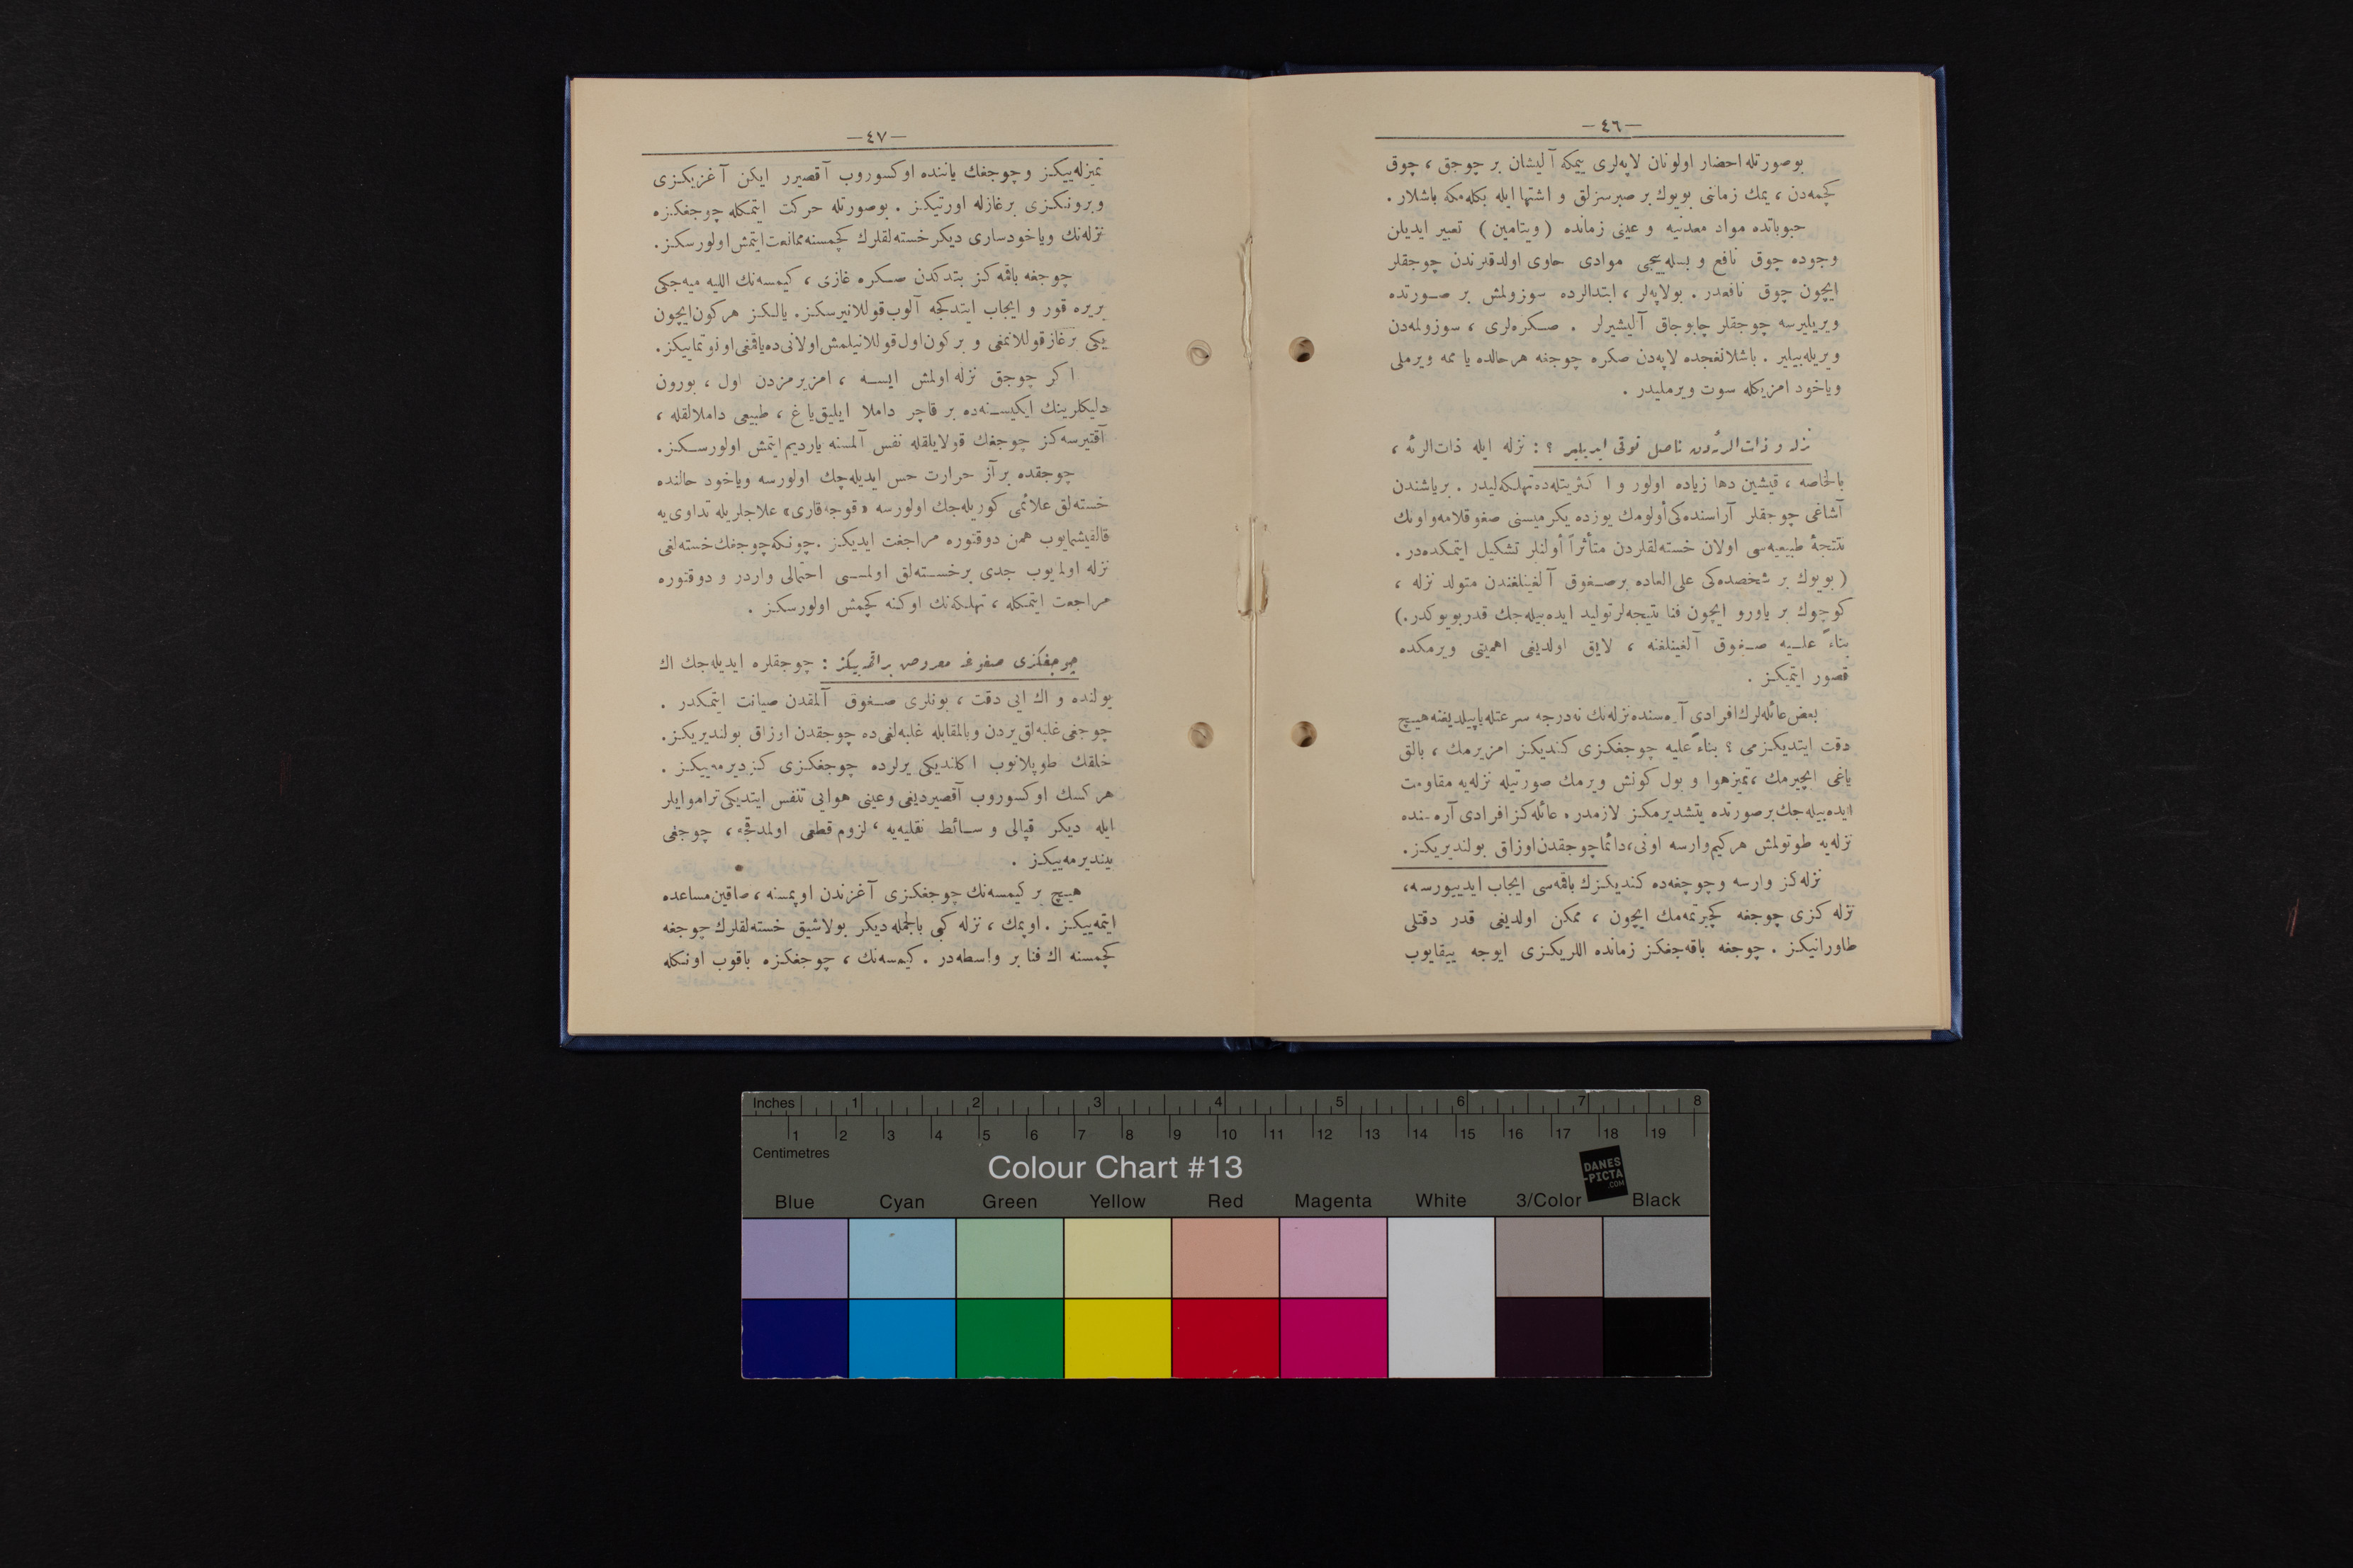 — ٤٦ —
بوصورتله احضار اولونان لاپه‌لری ییمكه آلیشان بر چوجق ، چوق
كچمه‌دن ، یمك زمانی بویوك بر صبرسزلق و اشتها ایله بكله‌مكه باشلار .
حبوباتده مواد معدنیه و عینی زمانده ( ویتامین ) تعبیر ایدیلن
وجوده چوق نافع و بسله‌ییجی موادی حاوی اولدقلرندن چوجقلر
ایچون چوق نافعدر . بولاپه‌لر ، ابتدالرده سوزولمش بر صورتده
ویریلیرسه چوجقلر چابوجاق آلیشیرلر . صكره‌لری ، سوزولمه‌دن
ویریله‌بیلیر . باشلانغجده لاپه‌دن صكره چوجغه هر حالده یا ممه ویرملی
ویاخود امزیكله سوت ویرملیدر .
نزله و ذات‌الرئه‌دن ناصل توقی ایدیلیر ؟ : نزله ایله ذات‌الرئه ،
بالخاصه ، قیشین دها زیاده اولور و اكثریتله‌ده تهلكه‌لیدر . بریاشندن
آشاغی چوجقلر آراسنده‌كی أولومك یوزده یكرمیسنی صغوقلامه واونك
نتیجۀ طبیعیه‌سی اولان خسته‌لقلردن متأثراً أولنلر تشكیل ایتمكده‌در .
( بویوك بر شخصده‌كی علی‌العاده برصغوق آلغینلغندن متولد نزله ،
كوچوك بر یاورو ایچون فنا نتیجه‌لر تولید ایده‌بیله‌جك قدر بویوكدر.)
بناءً علیه صغوق آلغینلغنه ، لایق اولدیغی اهمیتی ویرمكده
قصور ایتمیكز .
بعض عائله‌لرك افرادی آره‌سنده نزله‌نك نه‌درجه سرعتله یاییلدیغنه هیچ
دقت ایتدیكزمی ؟ بناءً علیه چوجغكزی كندیكز امزیرمك ، بالق
یاغی ایچیرمك ، تمیز هوا و بول كونش ویرمك صورتیله نزله‌یه مقاومت
ایده‌بیله‌جك برصورتده یتشدیرمكز لازمدر . عائله‌كز افرادی آره‌سنده
نزله‌یه طوتولمش هركیم وارسه اونی، دائما چوجقدن اوزاق بولندیریكز.
نزله‌كز وارسه وچوجغه‌ده كندیكزك باقمه‌سی ایجاب ایدییورسه،
نزله كزی چوجغه كچیرتمه‌مك ایچون ، ممكن اولدیغی قدر دقتلی
طاورانیكز . چوجغه باقه‌جغكز زمانده اللریكزی ایوجه ییقایوب
— ٤٧ —
تمیزله‌ییكز وچوجغك یاننده اوكسوروب آقصیرر ایكن آغزیكزی
وبرونكزی برغازله اورتیكز . بوصورتله حركت ایتمكله چوجغكزه
نزله‌نك ویاخودساری دیكر خسته‌لقلرك كچمسنه ممانعت ایتمش اولورسكز.
چوجغه باقمه‌كز بتدكدن صكره غازی ، كیمسه‌نك اللیه میه‌جكی
بریره قور و ایجاب ایتدكجه آلوب قوللانیرسكز. یالكز هركون ایچون
یكی برغاز قوللانمغی و بركون اول قوللانیلمش اولانی‌ده یاقمغی اونوتماییكز.
اكر چوجق نزله اولمش ایسه ، امزیرمزدن اول ، بورون
دلیكلرینك ایكیسنه‌ده بر قاچر داملا ایلیق یاغ ، طبیعی داملالقله ،
آقتیرسه‌كز چوجغك قولایلقله نفس آلمسنه یاردیم ایتمش اولورسكز.
چوجقده برآز حرارت حس ایدیله‌جك اولورسه ویاخود حالنده
خسته‌لق علائمی كوریله‌جك اولورسه «قوجه‌قاری» علاجلریله تداوی‌یه
قالقیشمایوب همن دوقتوره مراجعت ایدیكز . چونكه چوجغك خسته‌لغی
نزله اولمایوب جدی برخسته‌لق اولمسی احتمالی واردر و دوقتوره
مراجعت ایتمكله ، تهلكه‌نك اوكنه كچمش اولورسكز .
چوجغكزی صغوغه معروض براقمه‌ییكز : چوجقلره ایدیله‌جك اك
یولنده و اك ایی دقت ، بونلری صغوق آلمقدن صیانت ایتمكدر .
چوجغی غلبه‌لق یردن وبالمقابله غلبه‌لغی‌ده چوجقدن اوزاق بولندیریكز.
خلقك طوپلانوب اكلندیكی یرلرده چوجغكزی كزدیرمه‌ییكز .
هركسك اوكسوروب آقصیردیغی وعینی هوایی تنفس ایتدیكی تراموایلر
ایله دیكر قپالی وسائط نقلیه‌یه ، لزوم قطعی اولمدقجه ، چوجغی
بیندیرمه‌ییكز .
هیچ بر كیمسه‌نك چوجغكزی آغزندن اوپمسنه ، صاقین مساعده
ایتمه‌ییكز . اوپمك ، نزله كبی بالجمله دیكر بولاشیق خسته‌لقلرك چوجغه
كچمسنه اك فنا بر واسطه‌در . كیمسه‌نك ، چوجغكزه باقوب اونكله
Inches 1 2 3 4 5 6 7 8
1 2 3 4 5 6 7 8 9 10 11 12 13 14 15 16 17 18 19
Centimetres
Colour Chart #13
DANES
-PICTA
.COM
Blue Cyan Green Yellow Red Magenta White 3/Color Black